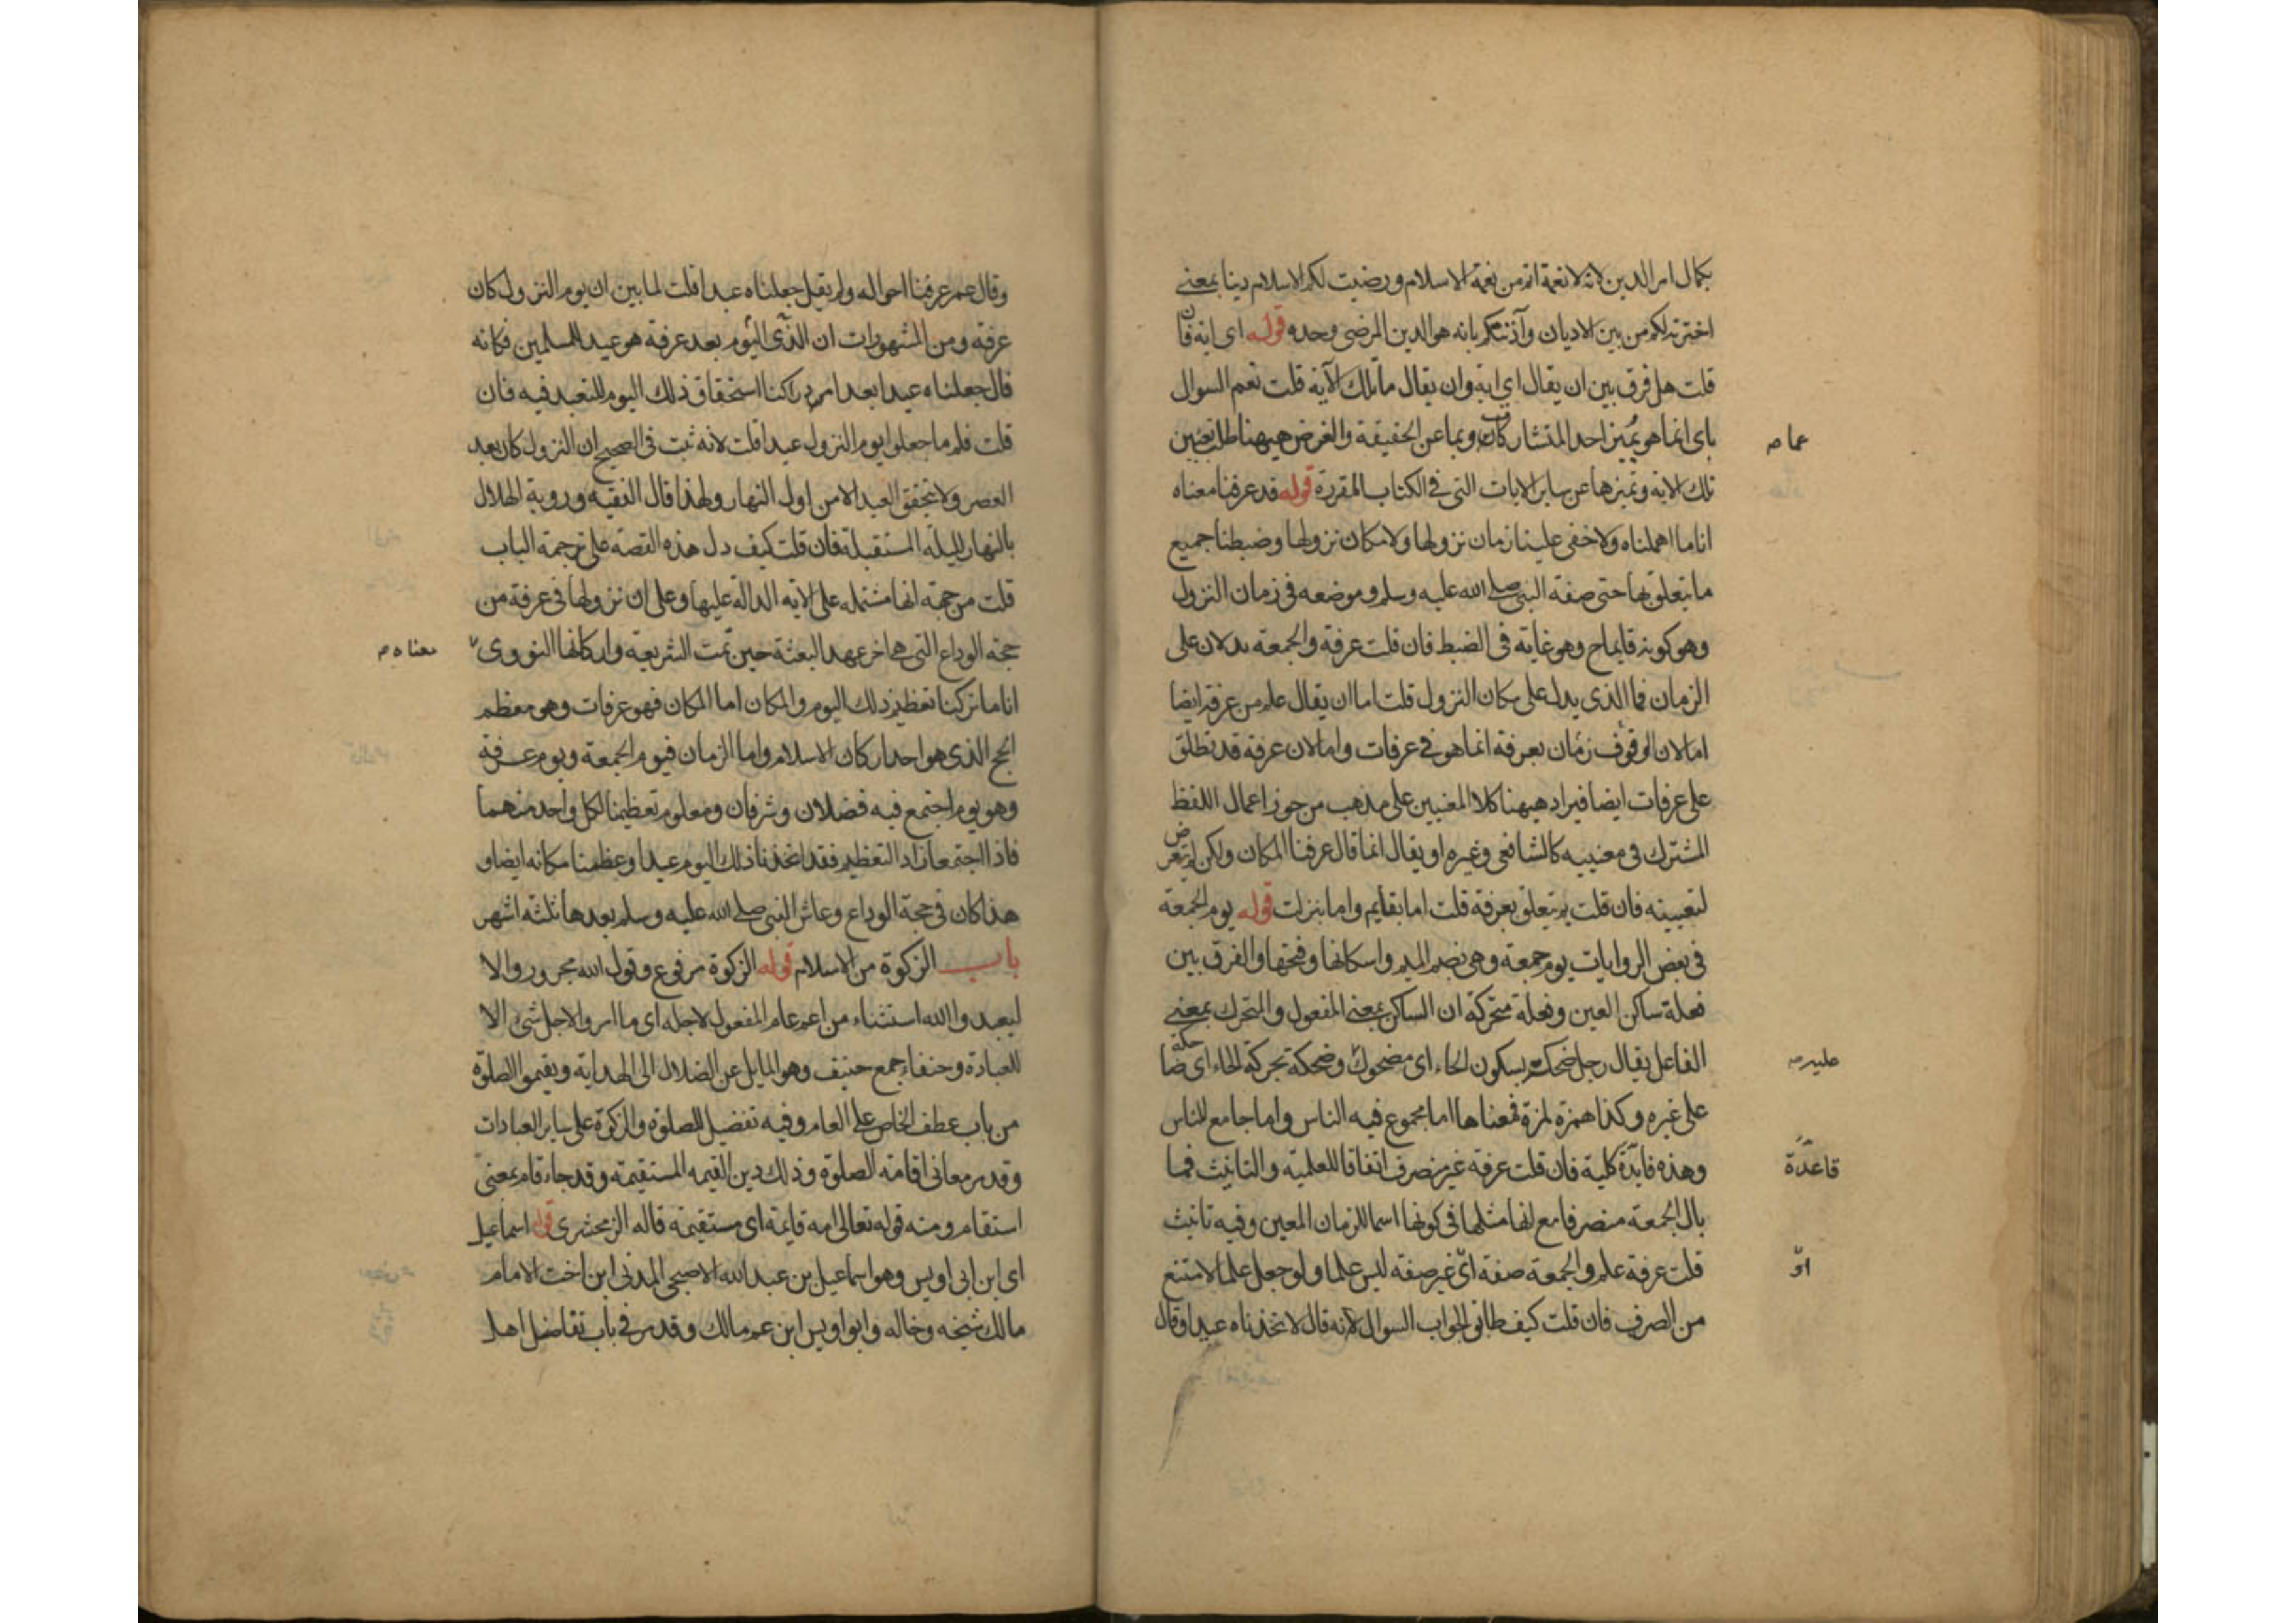 بكمال امر الدين لانه لا نعمة اتم من نعمة الاسلام ورضيت لكم الاسلام دينا بمعنى
اخترته لكم من بين الاديان وآذنتكم بانه هو الدين المرضي وحده قوله اى اية فان
قلت هل فرق بين ان يقال اي اية وان يقال ما تلك الآية قلت نعم السوال
باى انما هو يميز احد المتشاركات وبما عن الحقيقة والغرض ههنا طلب تعيين
عما
تلك الاية وتميزها عن ساير الايات التى فى الكتاب المقررة قوله قد عرفنا معناه
انا ما اهملناه ولا خفى علينا زمان نزولها ولا مكان نزولها وضبطنا جميع
ما يتعلق بها حتى صفة النبي صلى الله عليه وسلم وموضعه فى زمان النزول
وهو كونه قايما ح وهو غاية فى الضبط فان قلت عرفة والجمعة يدلان على
الزمان فما الذى يدل على مكان النزول قلت اما ان يقال علم من عرفة ايضا
اما لان الوقوف زمان بعرفة انما هو فى عرفات واما لان عرفة قد تطلق
على عرفات ايضا فيراد ههنا كلا المعنيين على مذهب من جوز اعمال اللفظ
المشترك فى معنييه كالشافعى وغيره او يقال انما قال عرفنا المكان ولكن لم يتعرض
لتعيينه فان قلت بم يتعلق بعرفة قلت اما بقايم واما بنزلت قوله يوم الجمعة
فى بعض الروايات يوم جمعة وهى بضم الميم واسكانها وفتحها والفرق بين
فعلة ساكن العين وفعلة متحركة ان الساكن بمعنى المفعول والمتحرك بمعنى
الفاعل يقال رجل ضحكة بسكون الحاء اى مضحوك وضحكة بحركة الحاء اى ضاحكة
عليه
على غيره وكذا همزة لمزة فمعناها اما مجموع فيه الناس واما جامع للناس
وهذه فايدة كلية فان قلت عرفة غير منصرف اتفاقا للعلمية والتانيث فما
قاعدة
بال الجمعة منصرفا مع انها مثلها فى كونها اسما للزمان المعين وفيه تانيث
قلت عرفة علم والجمعة صفة اى غير صفة ليس علما ولو جعل علما لامتنع
او
من الصرف فان قلت كيف طابق الجواب السوال لانه قال لاتخذناه عيدا وقال
وقال عمر عرفنا احواله ولم يقل جعلناه عيدا قلت لما بين ان يوم النزول كان
عرفة ومن المشهورات ان الذى اليوم بعد عرفة هو عيد للمسلمين فكانه
قال جعلناه عيدا بعد ادراكنا استحقاق ذلك اليوم للتعبد فيه فان
قلت فلم ما جعلوا يوم النزول عيدا قلت لانه ثبت فى الصحيح ان النزول كان بعد
العصر ولا يتحقق العيد الا من اول النهار ولهذا قال الفقيه وروية الهلال
بالنهار لليلة المستقبلة فان قلت كيف دل هذه القصة على ترجمة الباب
قلت من جهة انها مشتملة على الاية الدالة عليها وعلى ان نزولها فى عرفة من
حجة الوداع التى هى اخر عهد البعثة حين تمت الشريعة واركانها النووى
معناه
انا ما تركنا تعظيم ذلك اليوم والمكان اما المكان فهو عرفات وهو معظم
الحج الذى هو احد اركان الاسلام واما الزمان فيوم الجمعة ويوم عرفة
وهو يوم اجتمع فيه فضلان وشرفان ومعلوم تعظيمنا لكل واحد منهما
فاذا اجتمعا زاد التعظيم فقد اتخذنا ذلك اليوم عيدا وعظمنا مكانه ايضا و
هذا كان فى حجة الوداع وعاش النبي صلى الله عليه وسلم بعدها ثلثة اشهر
باب الزكوة من الاسلام قوله الزكوة مرفوع وقول الله مجرور والا
ليعبدوا الله استثناء من اعم عام المفعول لاجله اى ما امروا لاجل شى الا
للعبادة وحنفاء جمع حنيف وهو المايل عن الضلال الى الهداية ويقيموا الصلوة
من باب عطف الخاص على العام وفيه تفضيل للصلوة والزكوة على ساير العبادات
وقد مر معانى اقامة الصلوة وذلك دين القيمة المستقيمة وقد جاء قام بمعنى
استقام ومنه قوله تعالى امة قايمة اى مستقيمة قاله الزمخشرى قوله اسماعيل
اى ابن ابى اويس وهو اسماعيل بن عبد الله الاصبحى المدنى ابن اخت الامام
مالك شيخه وخاله وابو اويس ابن عم مالك وقد مر فى باب تفاضل اهل